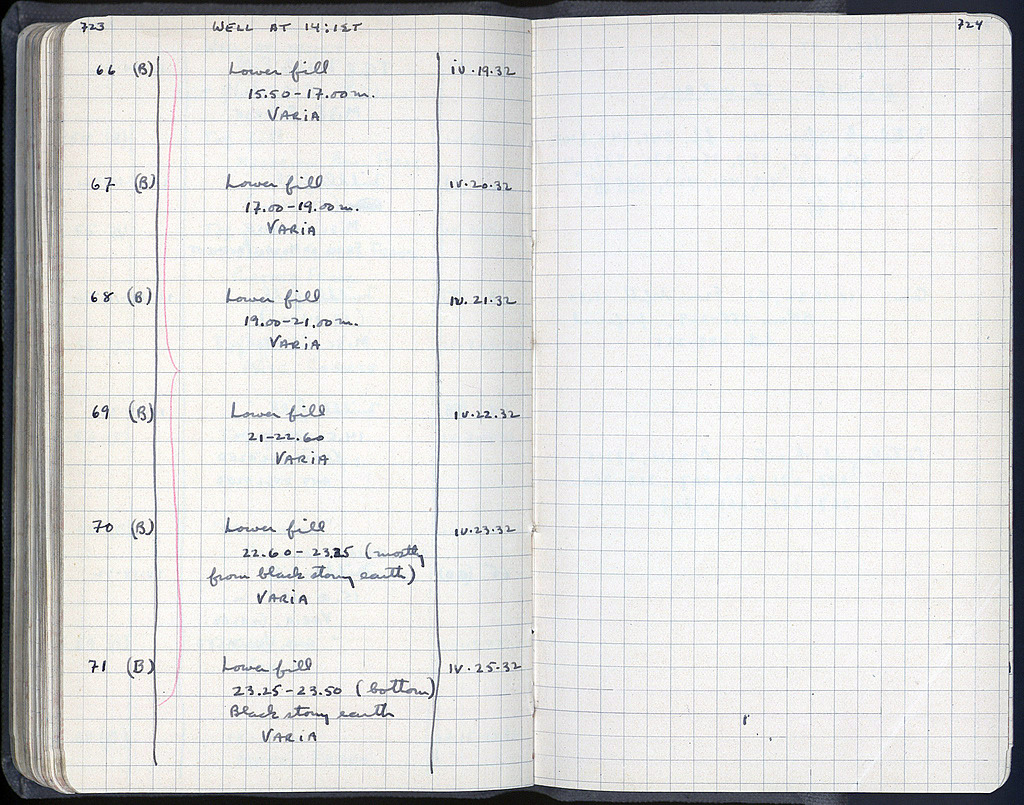 723 WELL AT 14:ΙΣΤ
66 (B) Lower fill iv.19.32
15.50-17.00 m.
VARiA
67 (B) Lower fill iv.20.32
17.00-19.00 m.
VARiA
68 (B) Lower fill iv.21.32
19.00-21.00 m.
VARiA
69 (B) Lower fill iv.22.32
21-22.60
VARiA
70 (B) Lower fill iv.23.32
22.60-23.25 (mostly
from black stony earth)
VARiA
71 (B) Lower fill iv.25-32
23.25-23.50 (bottom)
Black stony earth
VARiA
724